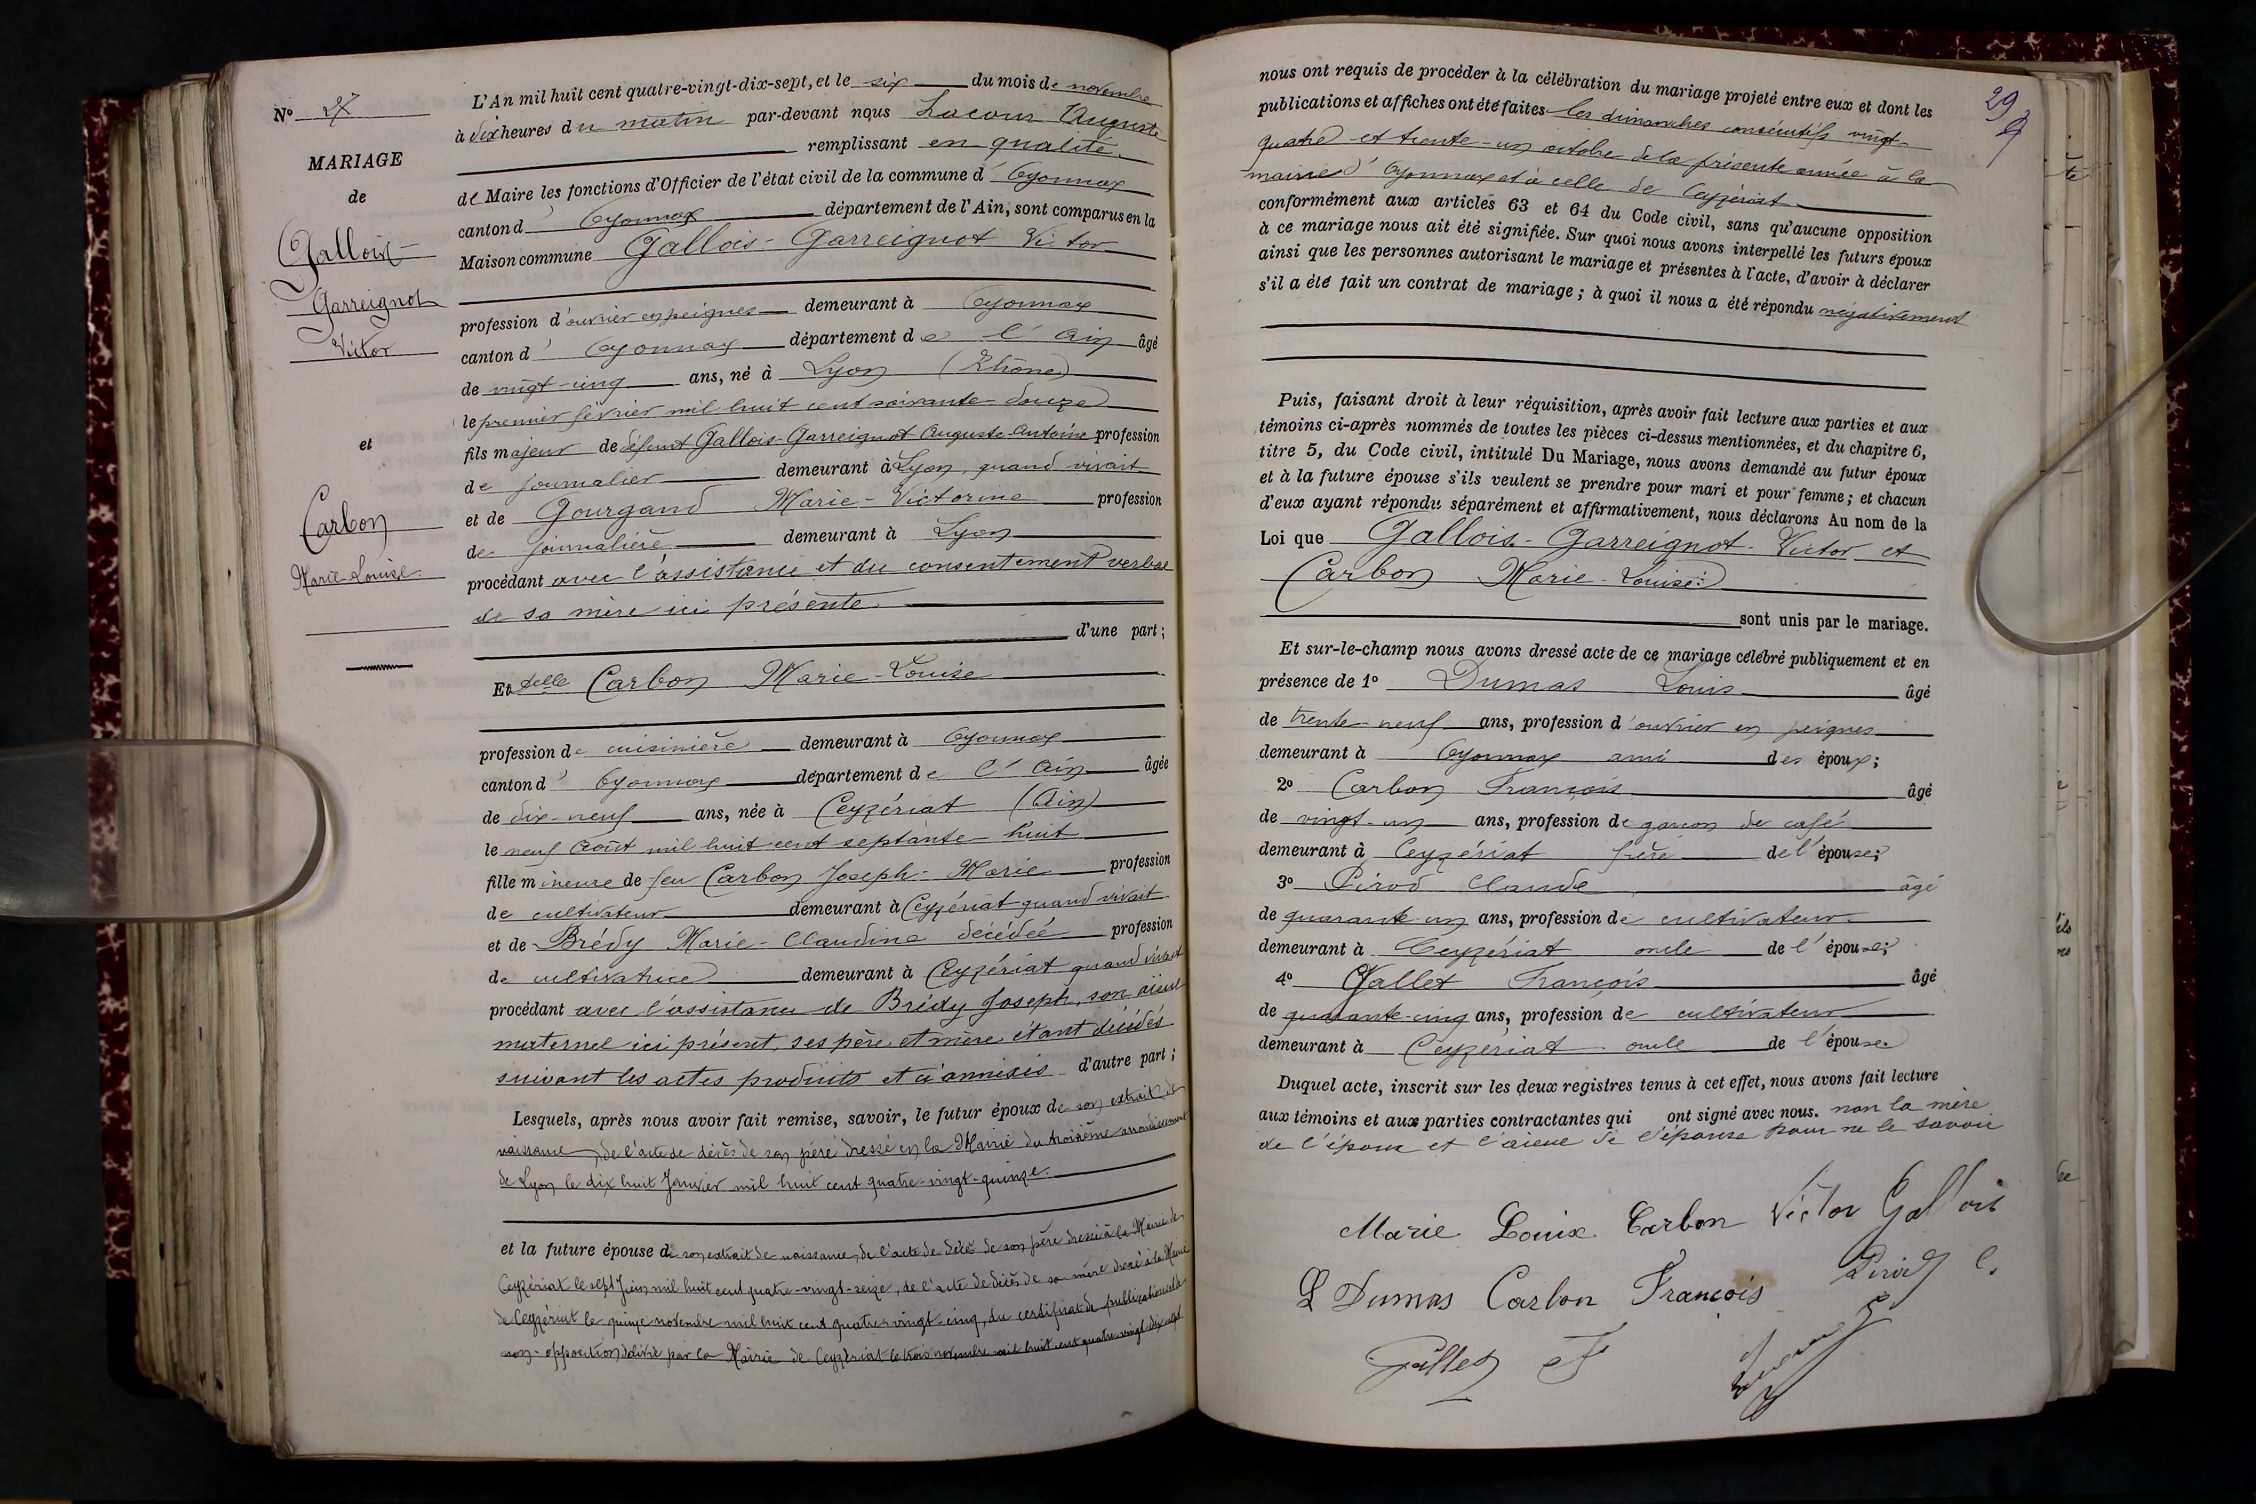 N° 27
MARIAGE
de
Gallois-
Garreignot
Victor
et
Carbon
Marie-Louise.
L'An mil huit cent quatre-vingt-dix-sept, et le six du mois de novembre
à dix heures du matin par-devant nous Lacour Auguste
remplissant en qualité
de Maire les fonctions d'Officier de l'état civil de la commune d'Oyonnax
canton d'Oyonnax département de l'Ain, sont comparus en la
Maison commune Gallois-Garreignot Victor
profession d'ouvrier en peignes demeurant à Oyonnax
canton d'Oyonnax département de l'Ain âgé
de vingt-cinq ans, né à Lyon (Rhône)
le premier février mil huit cent soixante-douze
fils majeur de défunt Gallois-Garreignot Auguste-Antoine profession
de journalier demeurant à Lyon, quand vivait
et de Gourgand Marie-Victorine profession
de journalière demeurant à Lyon
procédant avec l'assistance et du consentement verbal
de sa mère ici présente.
d'une part;
Et Delle Carbon Marie-Louise
profession de cuisinière demeurant à Oyonnax
canton d'Oyonnax département de l'Ain âgée
de dix-neuf ans, née à Ceyzériat (Ain)
le neuf Août mil huit cent septante-huit
fille mineure de feu Carbon Joseph-Marie profession
de cultivateur demeurant à Ceyzériat quand vivait
et de Brédy Marie-Claudine décédée profession
de cultivatrice demeurant à Ceyzériat quand vivait
procédant avec l'assistance de Brédy Joseph, son aïeul
maternel ici présent, ses père et mère étant décédés
suivant les actes produits et ci annexés d'autre part;
Lesquels, après nous avoir fait remise, savoir, le futur époux de son extrait de
naissance, de l'acte de décès de son père dressé en la Mairie du troisième arrondissement
de Lyon le dix huit Janvier mil huit cent quatre-vingt-quinze.
et la future épouse de son extrait de naissance, de l'acte de décès de son père dressé à la Mairie de
Ceyzériat le sept Juin mil huit cent quatre-vingt-seize, de l'acte de décès de sa mère dressé à la Mairie
de Ceyzériat le quinze novembre mil huit cent quatre-vingt-cinq, du certificat de publication et de
non-opposition délivré par la Mairie de Ceyzériat le trois novembre mil huit cent quatre-vingt dix sept
29
nous ont requis de procéder à la célébration du mariage projeté entre eux et dont les
publications et affiches ont été faites les dimanches consécutifs vingt-
quatre et trente-un octobre de la présente année à la
mairie d'Oyonnax et à celle de Ceyzériat
conformément aux articles 63 et 64 du Code civil, sans qu'aucune opposition
à ce mariage nous ait été signifiée. Sur quoi nous avons interpellé les futurs époux
ainsi que les personnes autorisant le mariage et présentes à l'acte, d'avoir à déclarer
s'il a été fait un contrat de mariage; à quoi il nous a été répondu négativement
Puis, faisant droit à leur réquisition, après avoir fait lecture aux parties et aux
témoins ci-après nommés de toutes les pièces ci-dessus mentionnées, et du chapitre 6,
titre 5, du Code civil, intitulé Du Mariage, nous avons demandé au futur époux
et à la future épouse s'ils veulent se prendre pour mari et pour femme; et chacun
d'eux ayant répondu séparément et affirmativement, nous déclarons Au nom de la
Loi que Gallois-Garreignot-Victor et
Carbon Marie-Louise
sont unis par le mariage.
Et sur-le-champ nous avons dressé acte de ce mariage célébré publiquement et en
présence de 1° Dumas Louis âgé
de trente-neuf ans, profession d'ouvrier en peignes
demeurant à Oyonnax ami des époux;
2° Carbon François âgé
de vingt-un ans, profession de garçon de café
demeurant à Ceyzériat frère de l'épouse;
3° Pirod Claude âgé
de quarante-un ans, profession de cultivateur
demeurant à Ceyzériat oncle de l'épouse;
4° Gallet François âgé
de quarante-cinq ans, profession de cultivateur
demeurant à Ceyzériat oncle de l'épouse
Duquel acte, inscrit sur les deux registres tenus à cet effet, nous avons fait lecture
aux témoins et aux parties contractantes qui ont signé avec nous. non la mère
de l'époux et l'aïeul de l'épouse pour ne le savoir
Marie Louise Carbon Victor Gallois
L Dumas Carbon François Pirod C.
Gallet F